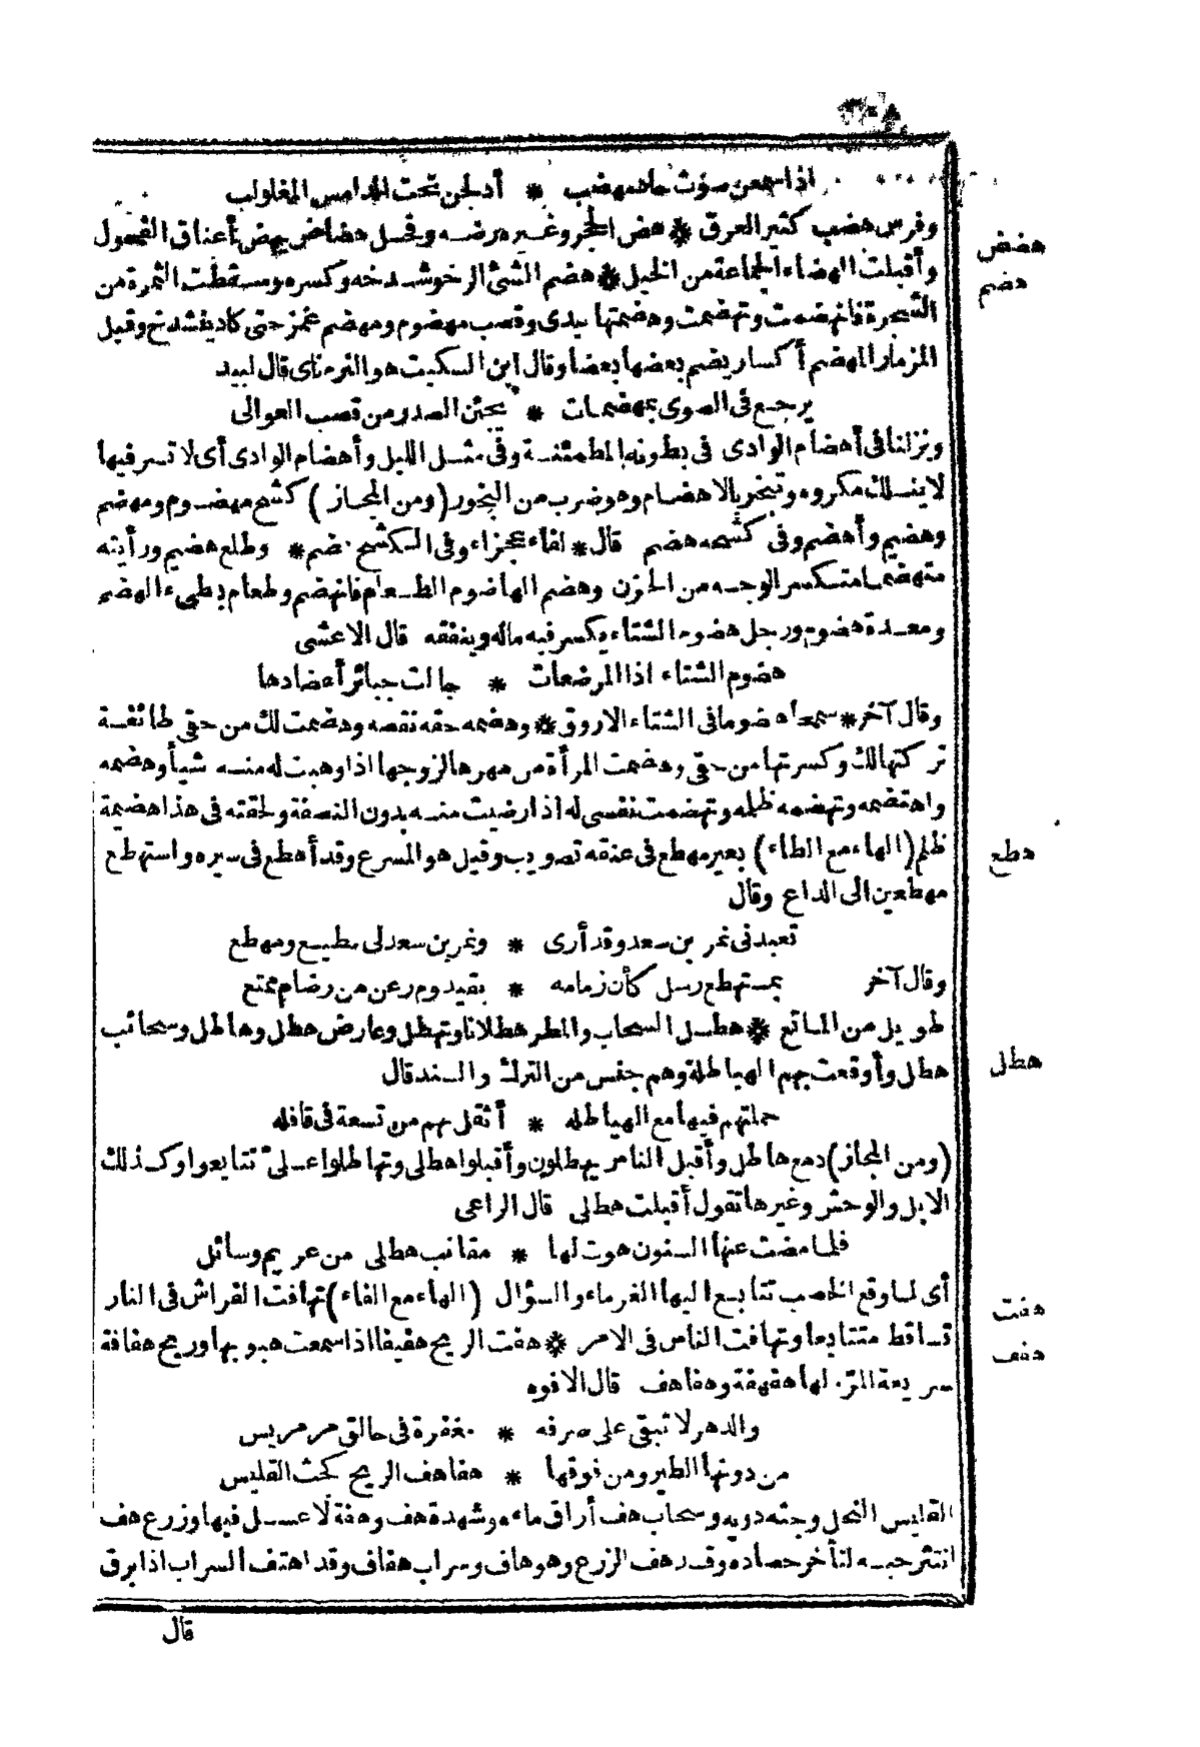 ٣٠٨
اذا سمعن صوت حاد مهضب * أدلجن تحت الدامس المغلولب
وفرس هضب كثير العرق * هض الحجر وغيره رضه وفحل هضاض يهض أعناق الفحول
هضض
وأقبلت الهضاء الجماعة من الخيل * هضم الشئ الرخو شدخه وكسره وسقطت الثمرة من
هضم
الشجرة فانهضمت وتهضمت وهضمتها بيدى وقصب مهضوم ومهضم غمز حتى كاد ينشدخ وقيل
المزمار المهضم أكسار يضم بعضها بعضا وقال ابن السكيت هو النرم ناى قال لبيد
يرجع فى الصوى بمهضمات * يجبن الصدر من قصب العوالى
ونزلنا فى أهضام الوادى فى بطونه المطمئنة وفى مثل الليل وأهضام الوادى أى لا تسر فيها
لا ينسلك مكروه وتبخر بالاهضام وهو ضرب من البخور (ومن المجاز) كشح مهضوم ومهضم
وهضيم وأهضم وفى كشحه هضم قال * لفاء عجزاء وفى الكشح هضم * وطلع هضيم ورأيته
متهضما متكسر الوجه من الحزن وهضم الهاضوم الطعام فانهضم وطعام بطىء الهضم
ومعدة هضوم ورجل هضوم الشتاء يكسر فيه ماله وينفقه قال الاعشى
هضوم الشتاء اذا المرضعات * جالت جبائر أعضادها
وقال آخر * سمحا هضوما فى الشتاء الاروق * وهضمه حقه نقصه وهضمت لك من حقى طائفة
تركتها لك وكسرتها من حقى وهضمت المرأة من مهرها لزوجها اذا وهبت له منه شيأ وهضمه
واهتضمه وتهضمه ظلمه وتهضمت نفسى له اذا رضيت منه بدون النصفة ولحقته فى هذا هضيمة
ظلم (الهاء مع الطاء) بعير مهطع فى عنقه تصويب وقيل هو المسرع وقد أهطع فى سيره واستهطع
هطع
مهطعين الى الداع وقال
تعبدنى نمر بن سعد وقد أرى * ونمر بن سعد لى مطيع ومهطع
وقال آخر بمستهطع رسل كأن زمامه * بقيدوم رعن من رضام ممتع
طويل من الماتع * هطل السحاب والمطر هطلانا وتهطل وعارض هطل وهاطل وسحائب
هطل
هطل وأوقعت بهم الهياطلة وهم جنس من الترك والسند قال
حملتهم فيها مع الهياطله * أثقل بهم من تسعة فى قافله
(ومن المجاز) دمع هاطل وأقبل الناس يهطلون وأقبلوا هطلى وتهاطلوا على تتابعوا وكذلك
الابل والوحش وغيرها تقول أقبلت هطلى قال الراعى
فلما مضت عنها السنون هوت لها * مقانب هطلى من غريم وسائل
أى لما وقع الخصب تتابع اليها الغرماء والسؤال (الهاء مع الفاء) تهافت الفراش فى النار
هفت
تساقط متتابعا وتهافت الناس فى الامر * هفت الريح هفيفا اذا سمعت هبوبها وريح هفافة
هفف
سريعة المرّ لها هفهفة وهفاهف قال الافوه
والدهر لا تبقى على صرفه * مغفرة فى حالق مرمريس
من دونها الطير ومن فوقها * هفاهف الريح كجث القليس
القليس النحل وجثه دويه وسحاب هف أراق ماءه وشهدة هف وهفة لا عسل فيها وزرع هف
انتثر حبه لتأخر حصاده وقد هف الزرع وهو هاف وسراب هفاف وقد اهتف السراب اذا برق
قال